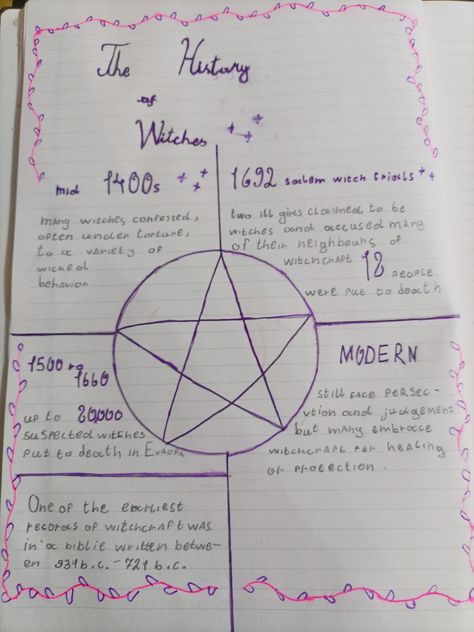 The History
of
Witches
mid 1400s
many witches confessed,
often under torture,
to a variety of
wicked
behavior
1692 salem witch trials
two ill girls claimed to be
witches and accused many
of their neighbours of
witchcraft 18 people
were put to death
1500 to
1660
up to 80,000
suspected witches
put to death in Europa
MODERN
still face persec-
ution and judgement
but many embrace
witchcraft for healing
or protection.
One of the earliest
records of witchcraft was
in a biblie written betwe-
en 931 b.c. - 721 b.c.